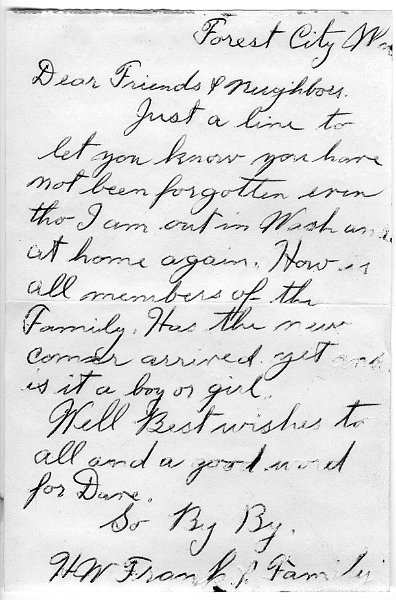 Forest City Wn
Dear Friends & Neighbors.
Just a line to
let you know you have
not been forgotten even
tho I am out in Wash and
at home again. How is
all members of the
Family. Has the new
comer arrived yet and
is it a boy or girl.
Well Best wishes to
all and a good word
for Dave.
So By By.
HW Frank & Family